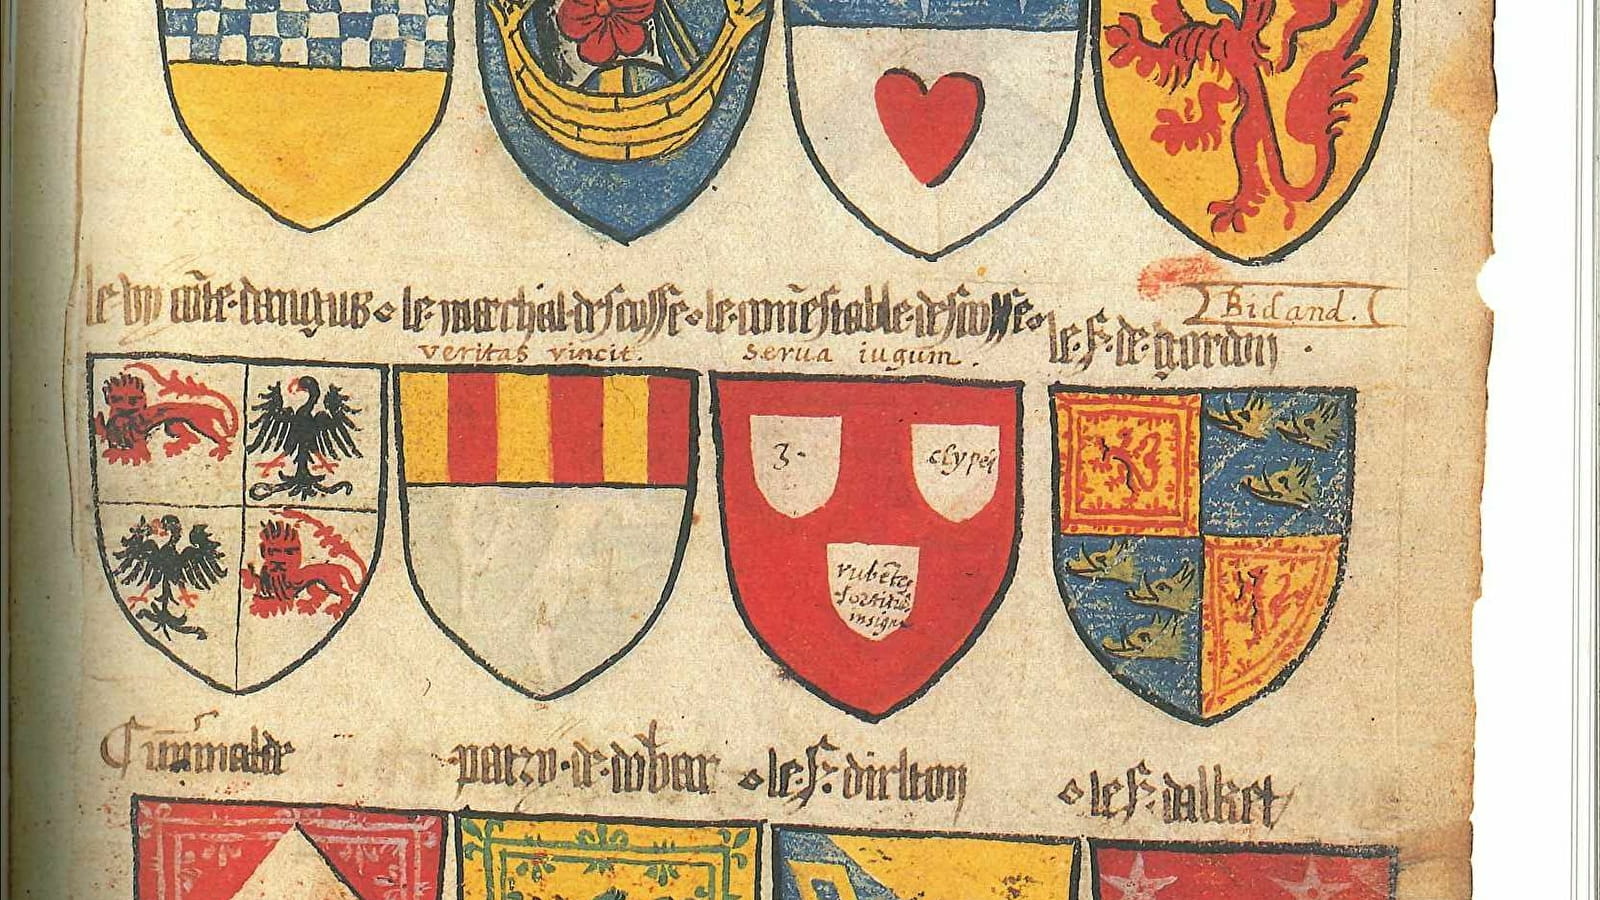 le vy côte dangus · le marchal descosse · le conestable descosse · le S. de gordon ·
Bidand.
veritas vincit. serua iugum.
3. clypei
rubētes
insign
patry de dōbar · le S. dirlton · le S. dalket